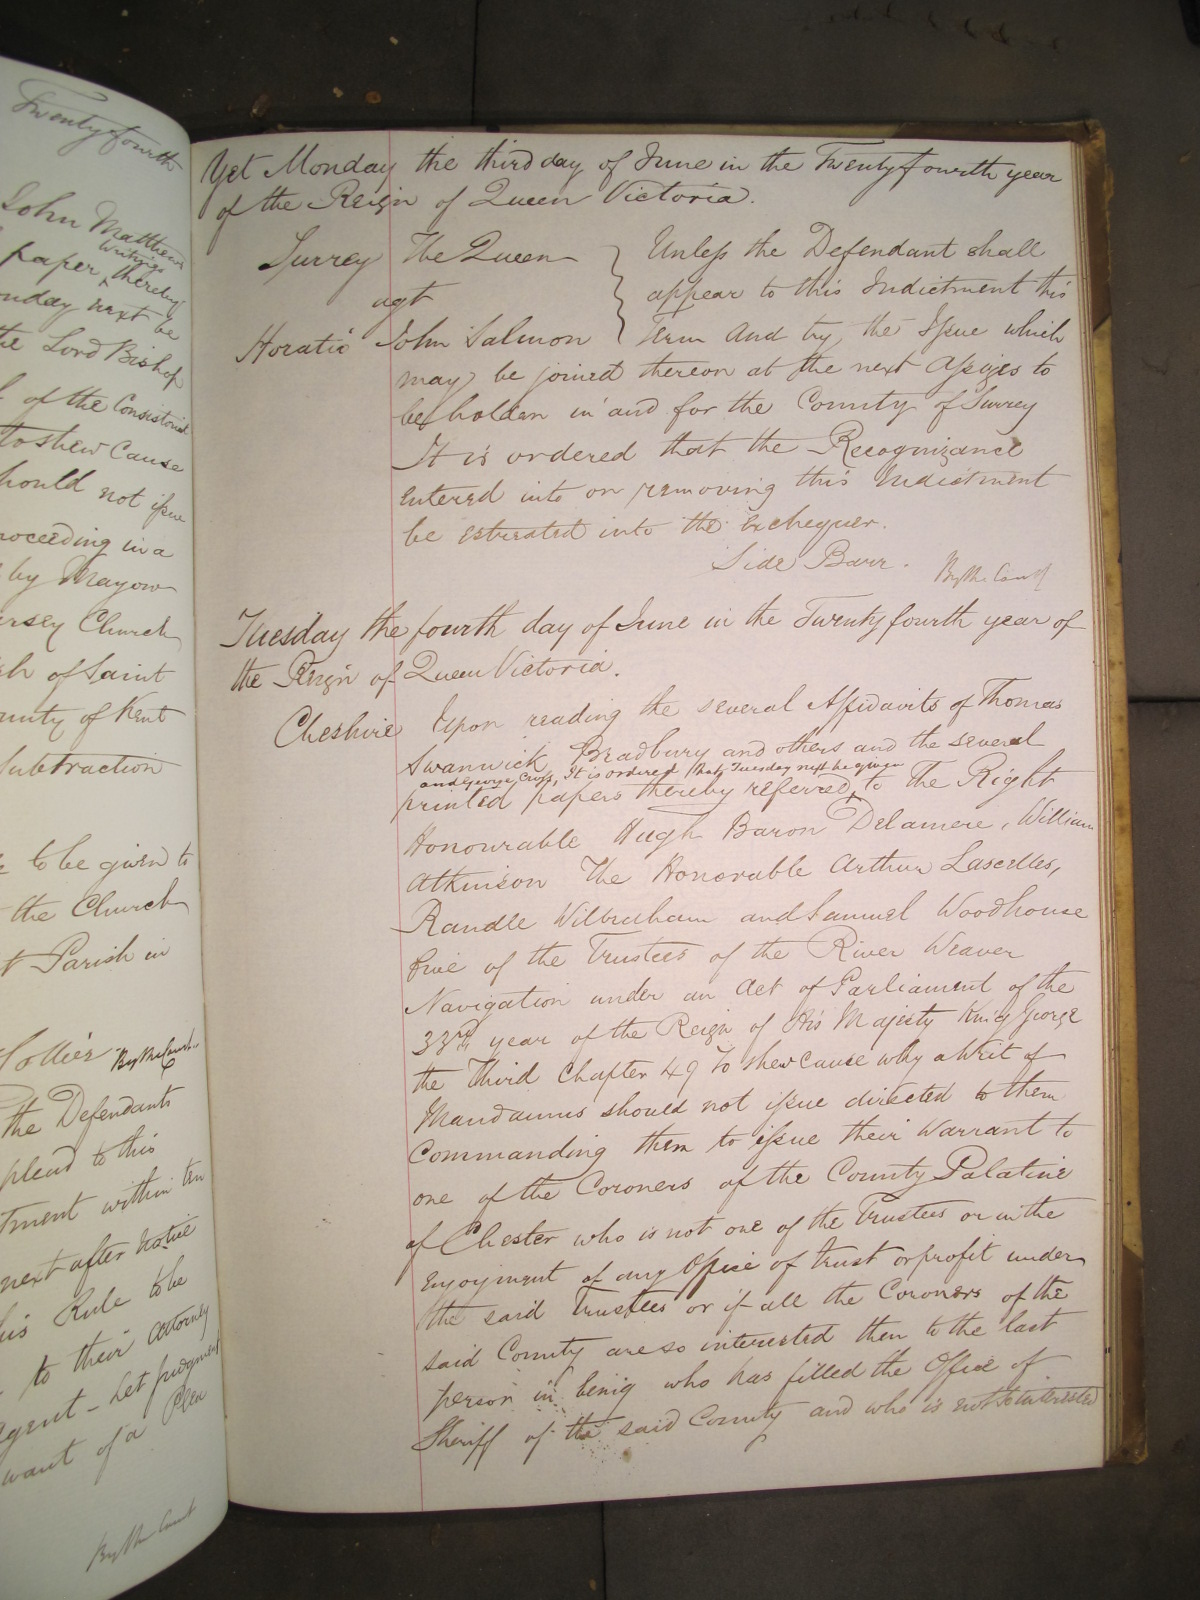 Twentyfourth
John Matthews
writings
paper thereby
onday next be
the Lord Bishop
of the Consistorial
to shew Cause
hould not issue
roceeding in a
by Mayow
rsey Church
sh of Saint
ounty of Kent
Subtraction
to be given to
the Church
Parish in
Collier By the Court
the Defendants
plead to this
tment within ten
next after notice
his Rule to be
to their attorney
agent - Let Judgment
want of a Plea
By the Court
Yet Monday the third day of June in the Twentyfourth year
of the Reign of Queen Victoria.
Surrey The Queen } Unless the Defendant shall
agt appear to this Indictment this
Horatio John Salmon Term and try the Issue which
may be joined thereon at the next Assizes to
be holden in and for the County of Surrey
It is ordered that the Recognizance
entered into on removing this Indictment
be estreated into the Exchequer.
Side Barr. By the Court
Tuesday the fourth day of June in the Twentyfourth year of
the Reign of Queen Victoria.
Cheshire Upon reading the several Affidavits of Thomas
Swanwick Bradbury and others and the several
and George Cross, It is ordered that Tuesday next be given
printed papers thereby referred to The Right
Honourable Hugh Baron Delamere, William
Atkinson The Honorable Arthur Lascelles,
Randle Wilbraham and Samuel Woodhouse
five of the Trustees of the River Weaver
Navigation under an Act of Parliament of the
33rd year of the Reign of His Majesty King George
the Third Chapter 49 To shew cause why a Writ of
Mandamus should not issue directed to them
Commanding them to issue their Warrant to
one of the Coroners of the County Palatine
of Chester who is not one of the Trustees or in the
enjoyment of any Office of trust or profit under
the said Trustees or if all the Coroners of the
said County are so interested then to the last
person in being who has filled the Office of
Sheriff of the said County and who is not so interested